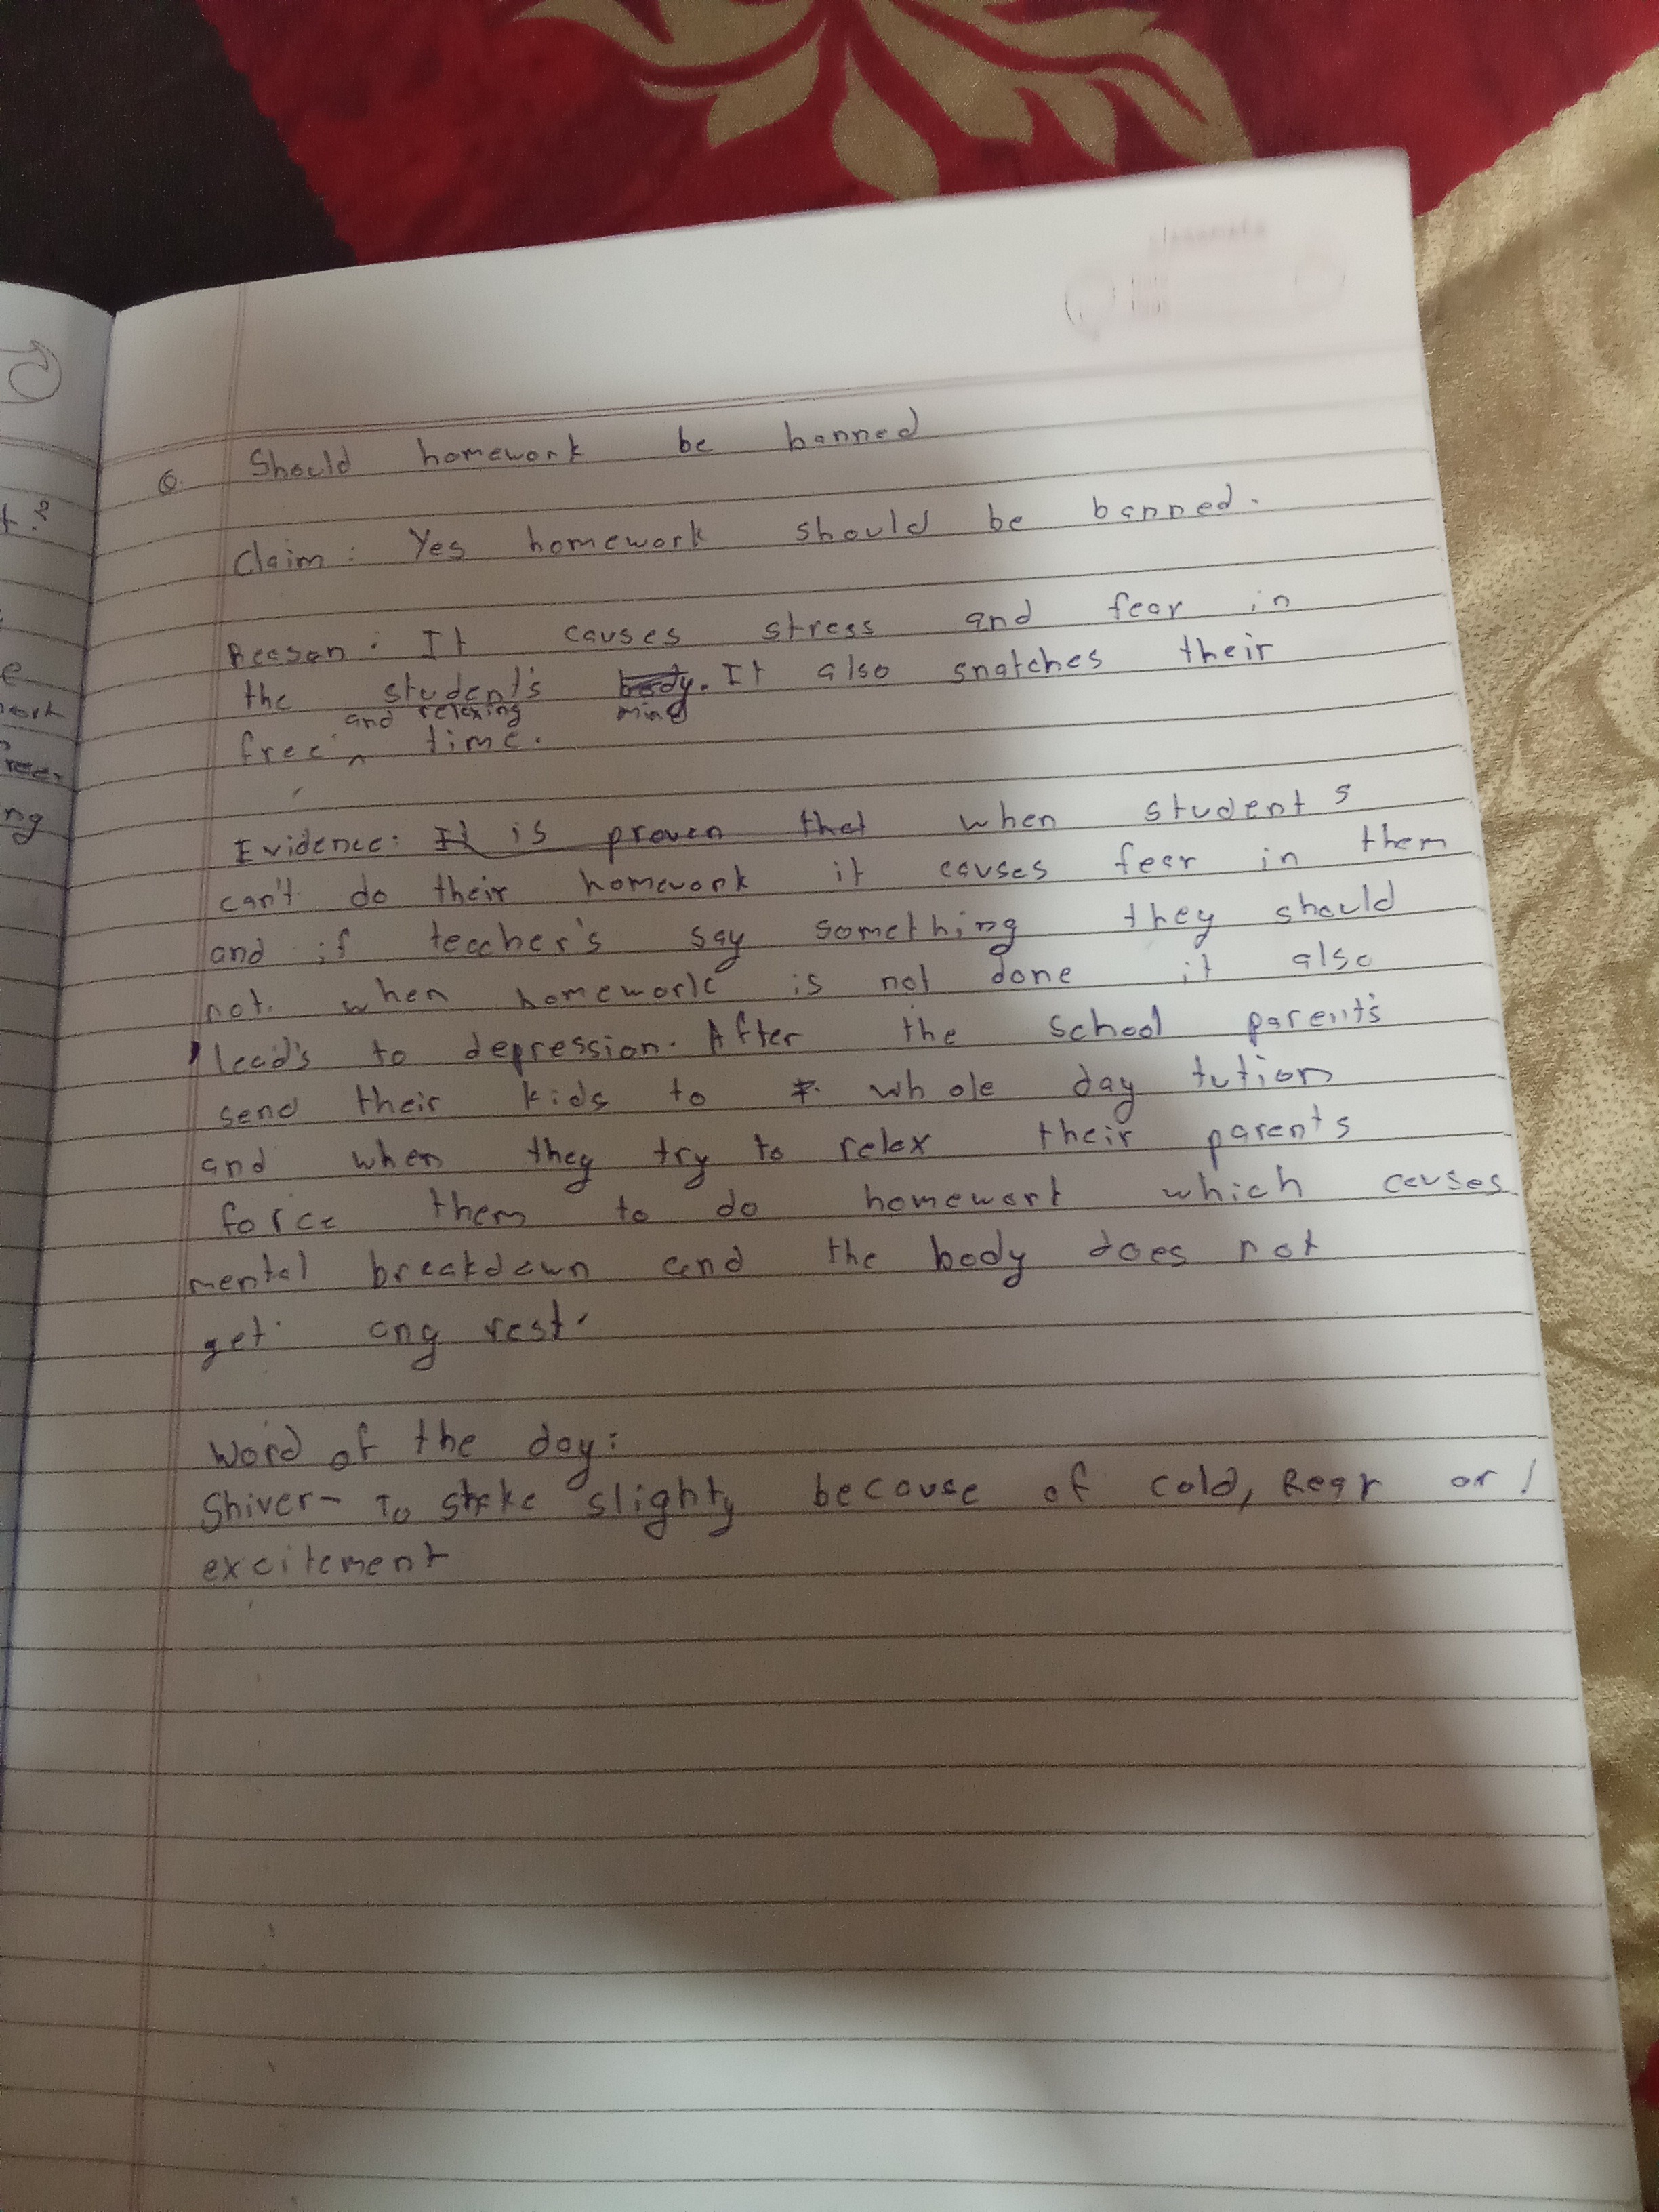 Q. Should homework be banned
Claim: Yes homework should be banned.
Reason: It causes stress and fear in
the student's mind. It also snatches their
free and relaxing time.
Evidence: It is proven that when students
can't do their homework it causes fear in them
and if teacher's say something they should
not. when homework is not done it also
lead's to depression. After the school parent's
send their kids to whole day tution
and when they try to relax their parents
force them to do homework which causes
mental breakdown and the body does not
get any rest.
Word of the day:
Shiver- To shake slighty because of cold, fear or
excitement